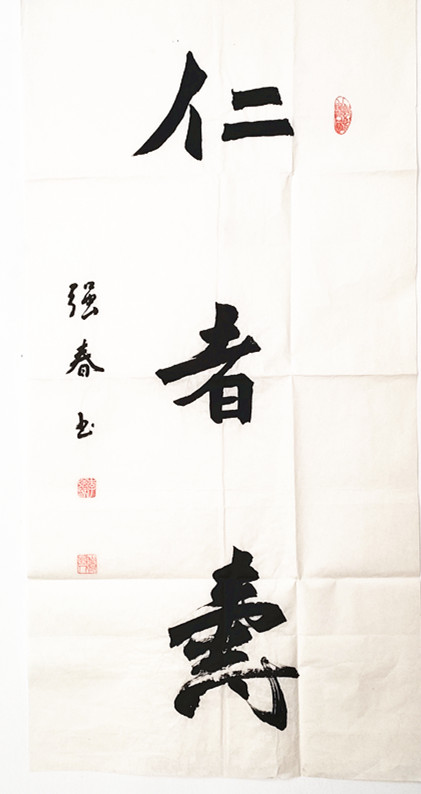 仁者壽
强春书